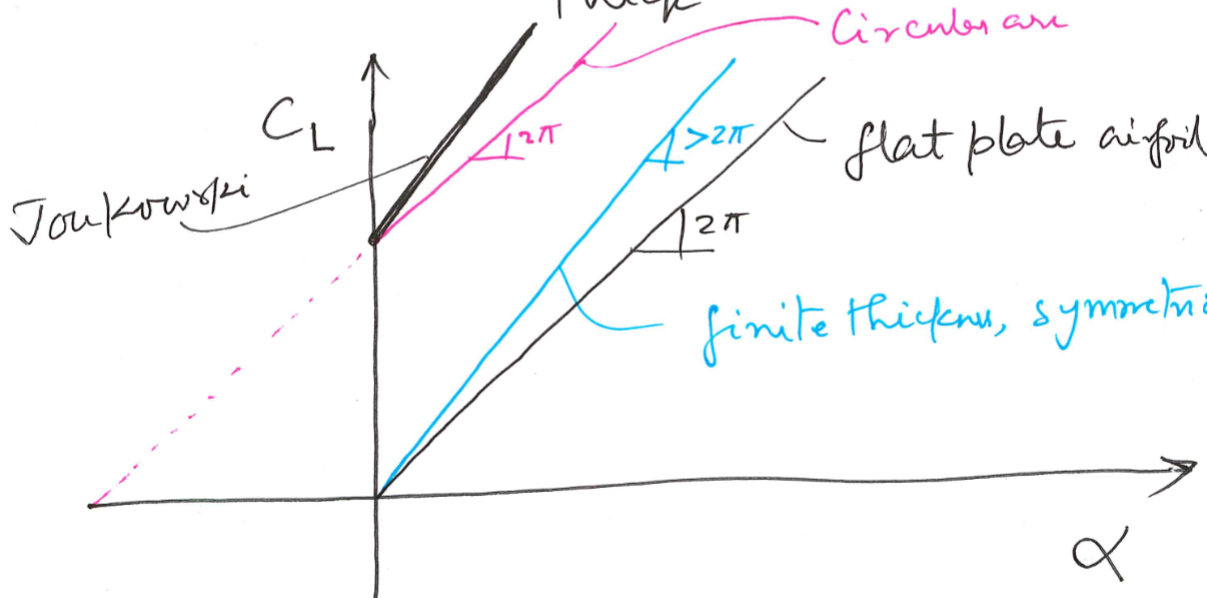 Thick
Circular arc
CL
2π
>2π
flat plate airfoil
Joukowski
2π
finite thickness, symmetri
α